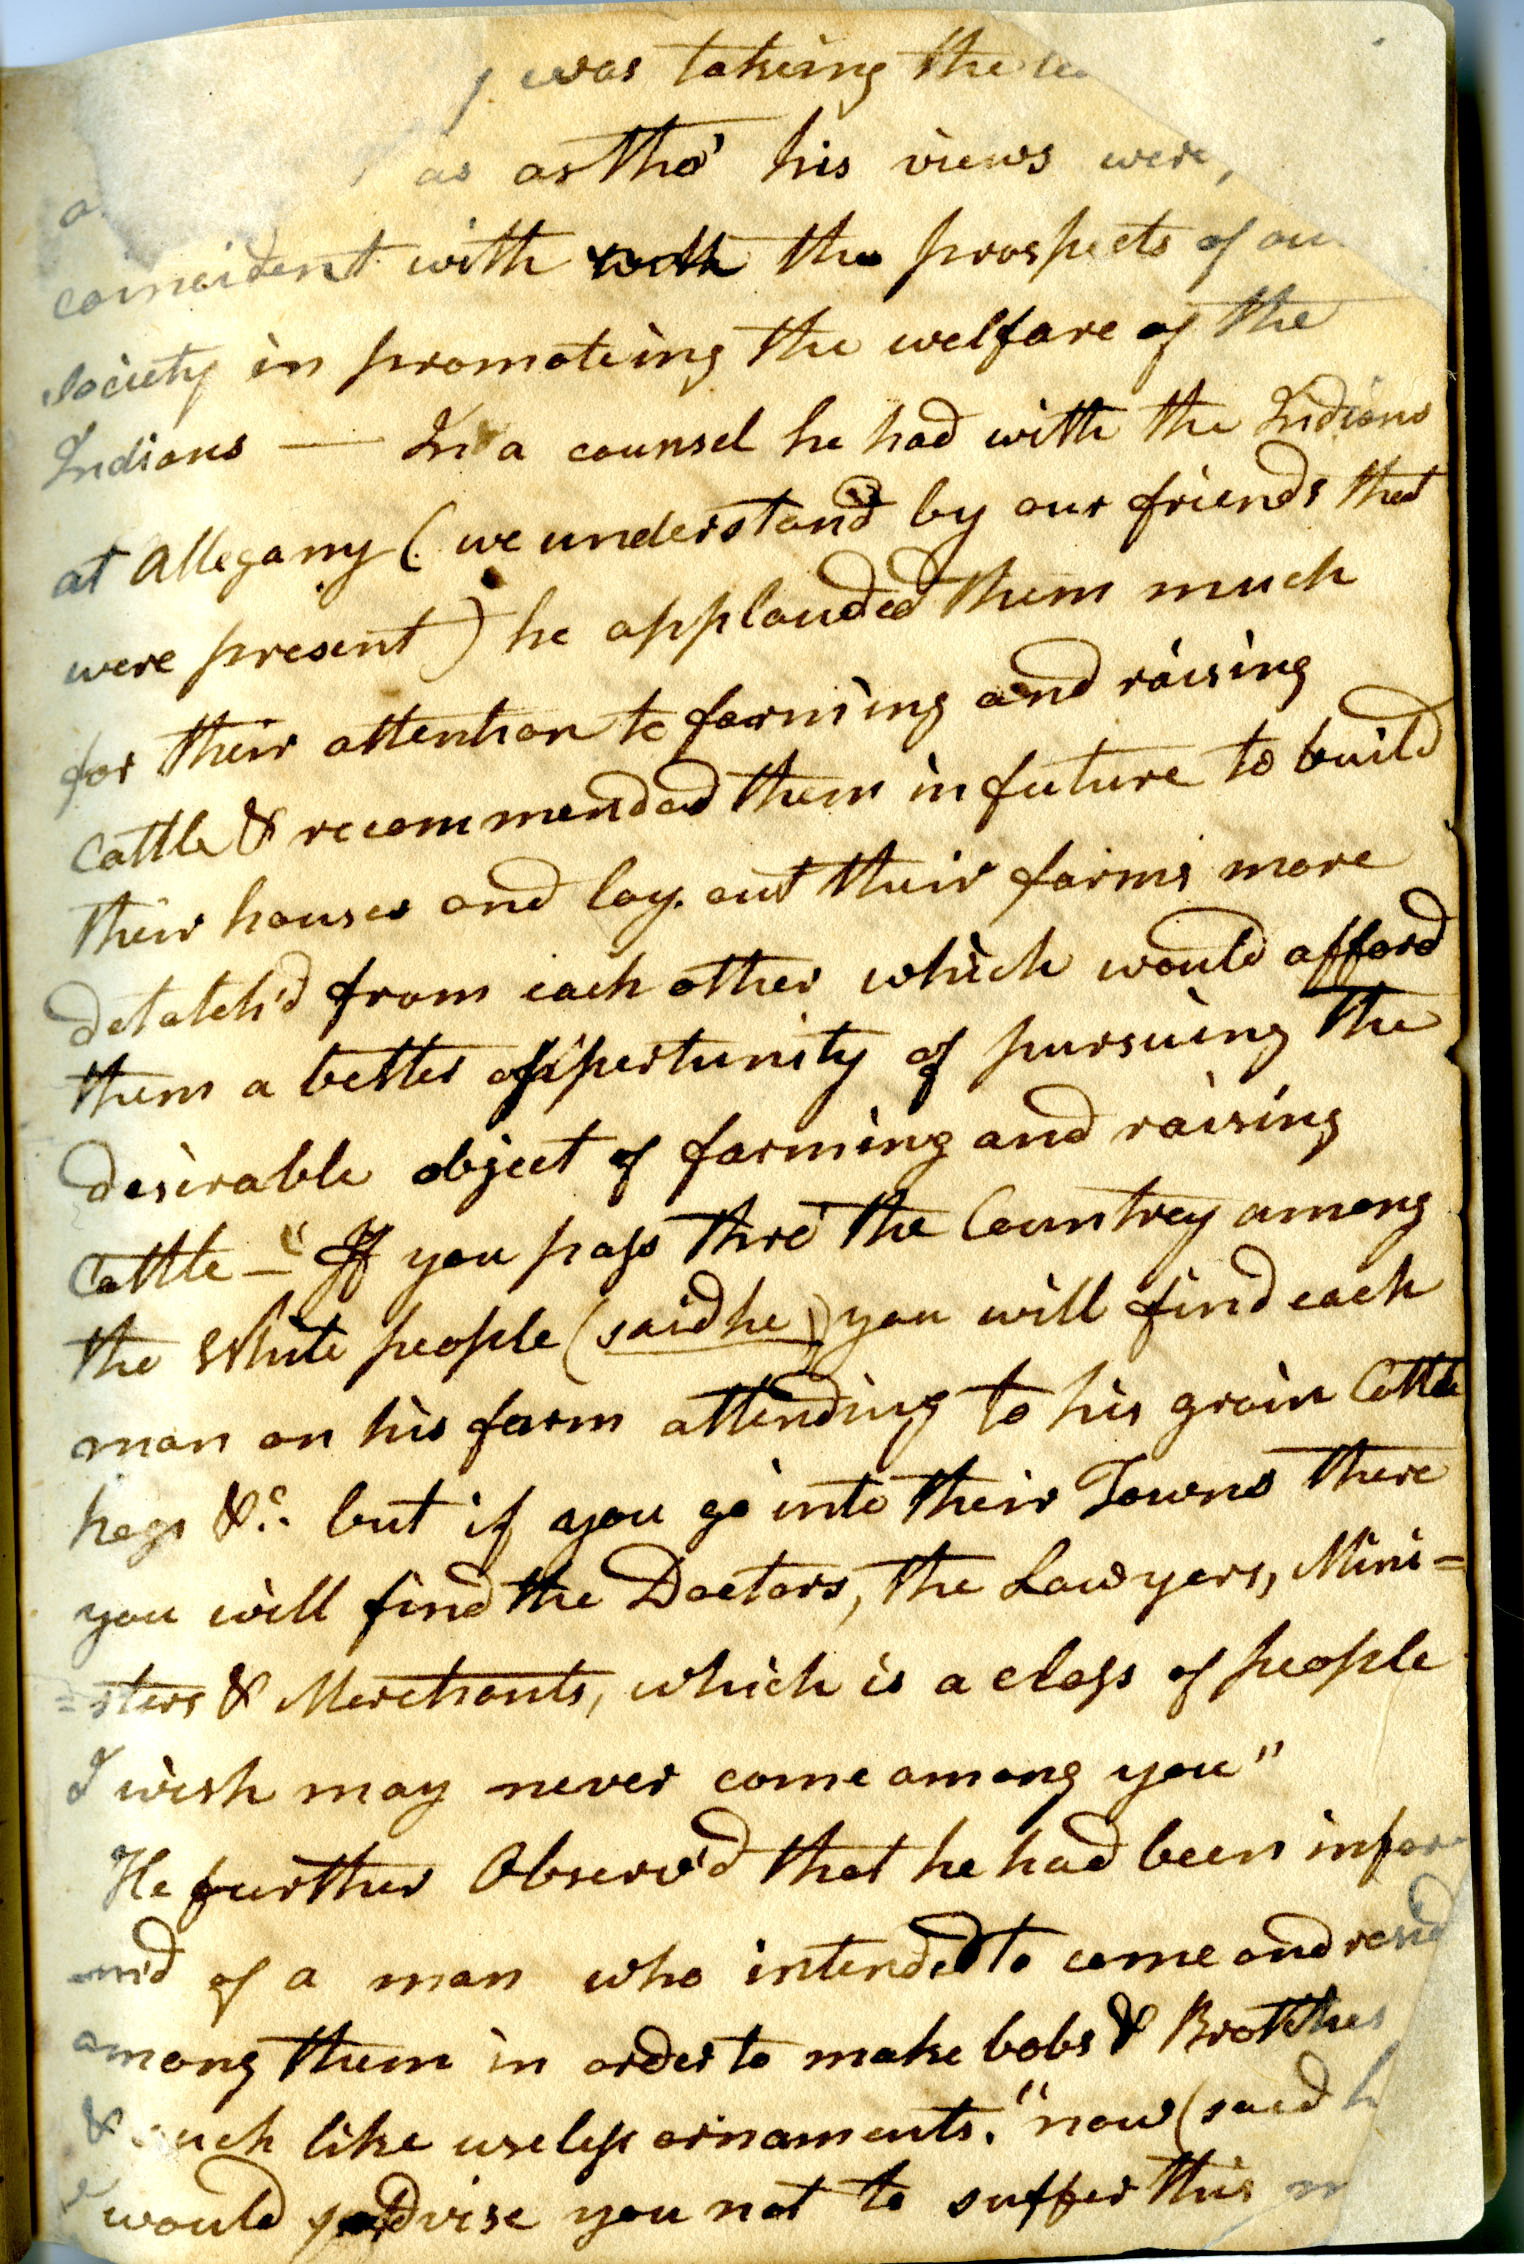 was taking the
as as tho' his views were,
coincident with with the prospects of our
society in promoteing the welfare of the
Indians — In a counsel he had with the Indians
at Allegany (we understand by our friends that
were present) he applauded them much
for their attention to farming and raising
Cattle & recommended them in future to build
their houses and lay out their farms more
detatch'd from each other which would afford
them a better oppertunity of pursuing the
desirable object of farming and raising
Cattle — "If you pass thro' the Countrey among
the White people (said he) you will find each
man on his farm attending to his grain Cattle
hogs &c. but if you go into their Towns there
you will find the Doctors, the Lawyers, Mini=
=sters & Merchants, which is a class of people
I wish may never come among you"
He further Observ'd that he had been infor
m'd of a man who intended to come and resid
among them in order to make bobs & Brotches
& such like useless ornaments. "now (said h
would advise you not to suffer this